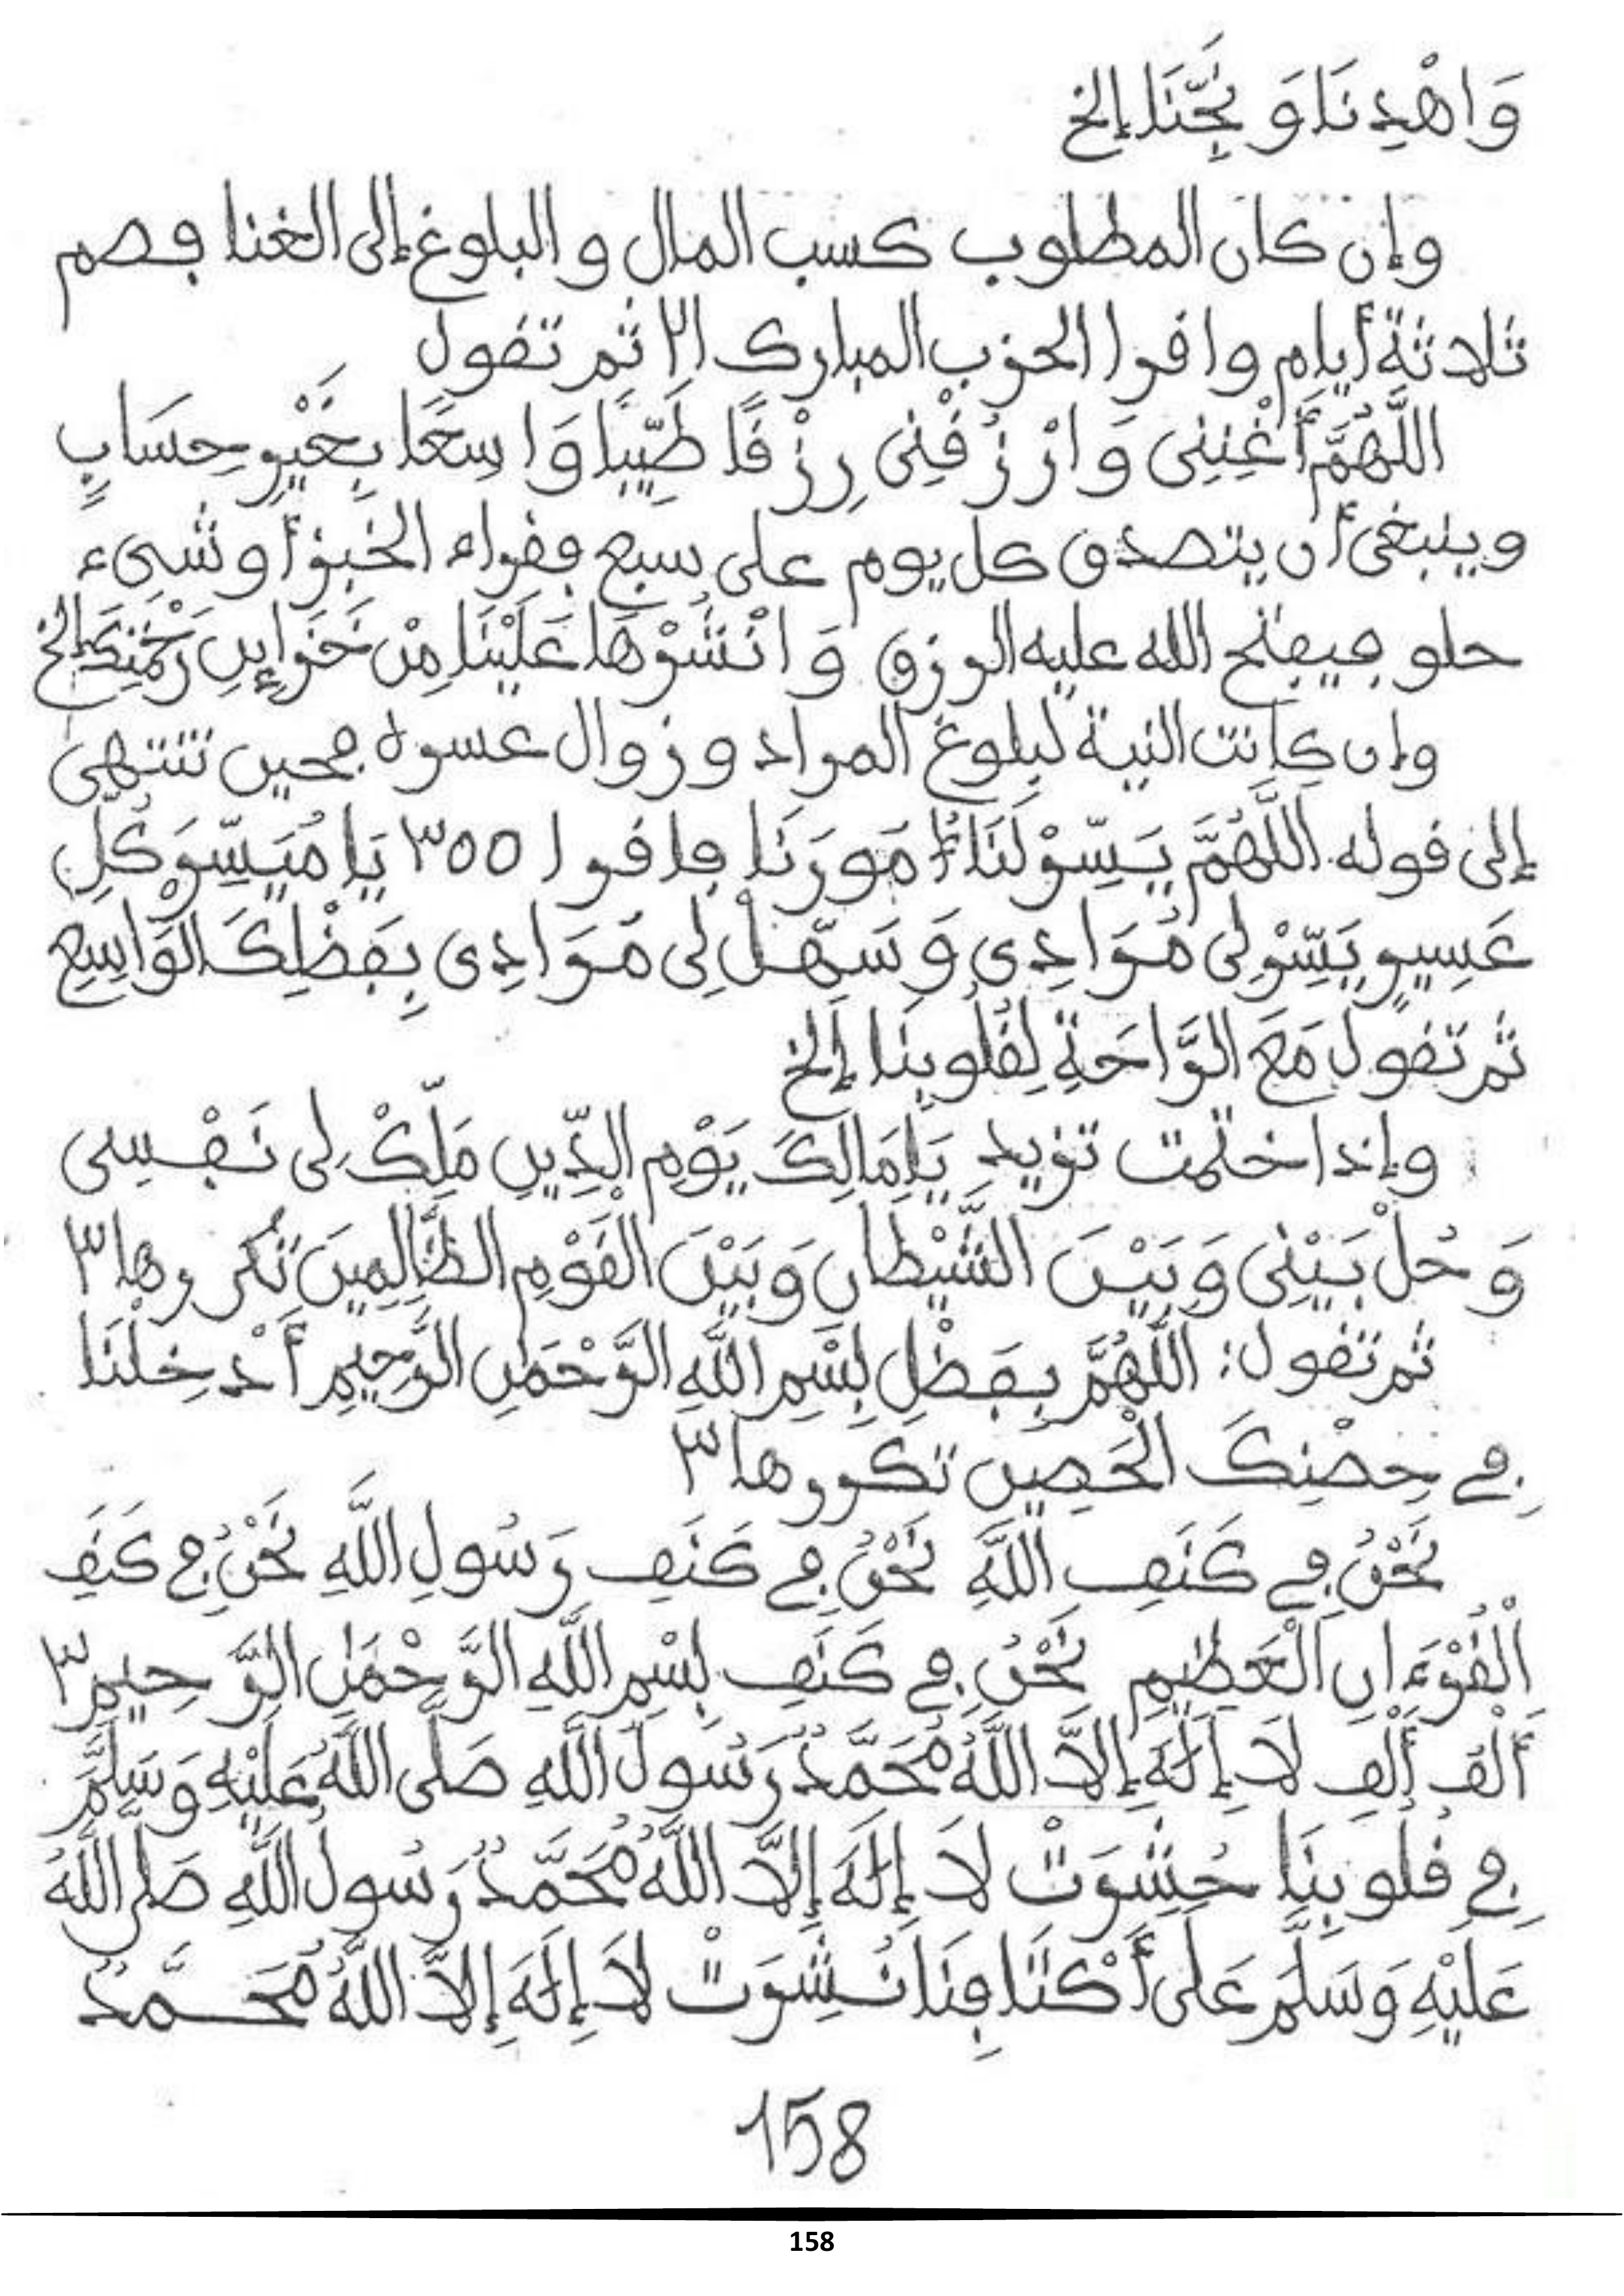 وَاهْدِنَا وَنَجِّنَا إلخ
وإن كان المطلوب كسب المال والبلوغ إلى الغنا فصم
ثلاثة أيام واقرا الحزب المبارك ٢١ ثم تقول
اللَّهُمَّ أَغْنِنِى وَارْزُقْنِى رِزْقًا طَيِّبًا وَاسِعًا بِغَيْرِ حِسَابٍ
وينبغى أن يتصدق كل يوم على سبع فقراء الخبز أو شىء
حلو فيفتح الله عليه الرزق وَانْشُرْهَا عَلَيْنَا مِنْ خَزَايِنِ رَحْمَتِكَ إلخ
وإن كانت النية لبلوغ المراد وزوال عسره فحين تنتهى
إلى قوله اللَّهُمَّ يَسِّرْ لَنَا أُمُورَنَا فاقرا ٣٥٥ يَا مُيَسِّرَ كُلِّ
عَسِيرٍ يَسِّرْ لِى مُرَادِى وَسَهِّلْ لِى مُرَادِى بِفَضْلِكَ الْوَاسِعِ
ثم تقول مَعَ الرَّاحَةِ لِقُلُوبِنَا إلخ
وإذا ختمت تزيد يَا مَالِكَ يَوْمِ الدِّينِ مَلِّكْ لِى نَفْسِى
وَحُلْ بَيْنِى وَبَيْنَ الشَّيْطَانِ وَبَيْنَ الْقَوْمِ الظَّالِمِينَ تكررها ٣
ثم تقول: اللَّهُمَّ بِفَضْلِ بِسْمِ اللَّهِ الرَّحْمَٰنِ الرَّحِيمِ أَدْخِلْنَا
فِى حِصْنِكَ الْحَصِينِ تكررها ٣
نَحْنُ فِى كَنَفِ اللَّهِ نَحْنُ فِى كَنَفِ رَسُولِ اللَّهِ نَحْنُ فِى كَنَفِ
الْقُرْءَانِ الْعَظِيمِ نَحْنُ فِى كَنَفِ بِسْمِ اللَّهِ الرَّحْمَٰنِ الرَّحِيمِ ٣
أَلْفُ أَلْفِ لَا إِلَهَ إِلَّا اللَّهُ مُحَمَّدٌ رَسُولُ اللَّهِ صَلَّى اللَّهُ عَلَيْهِ وَسَلَّمَ
فِى قُلُوبِنَا حُشِرَتْ لَا إِلَهَ إِلَّا اللَّهُ مُحَمَّدٌ رَسُولُ اللَّهِ صَلَّى اللَّهُ
عَلَيْهِ وَسَلَّمَ عَلَى أَكْتَافِنَا نُشِرَتْ لَا إِلَهَ إِلَّا اللَّهُ مُحَمَّدٌ
158
158